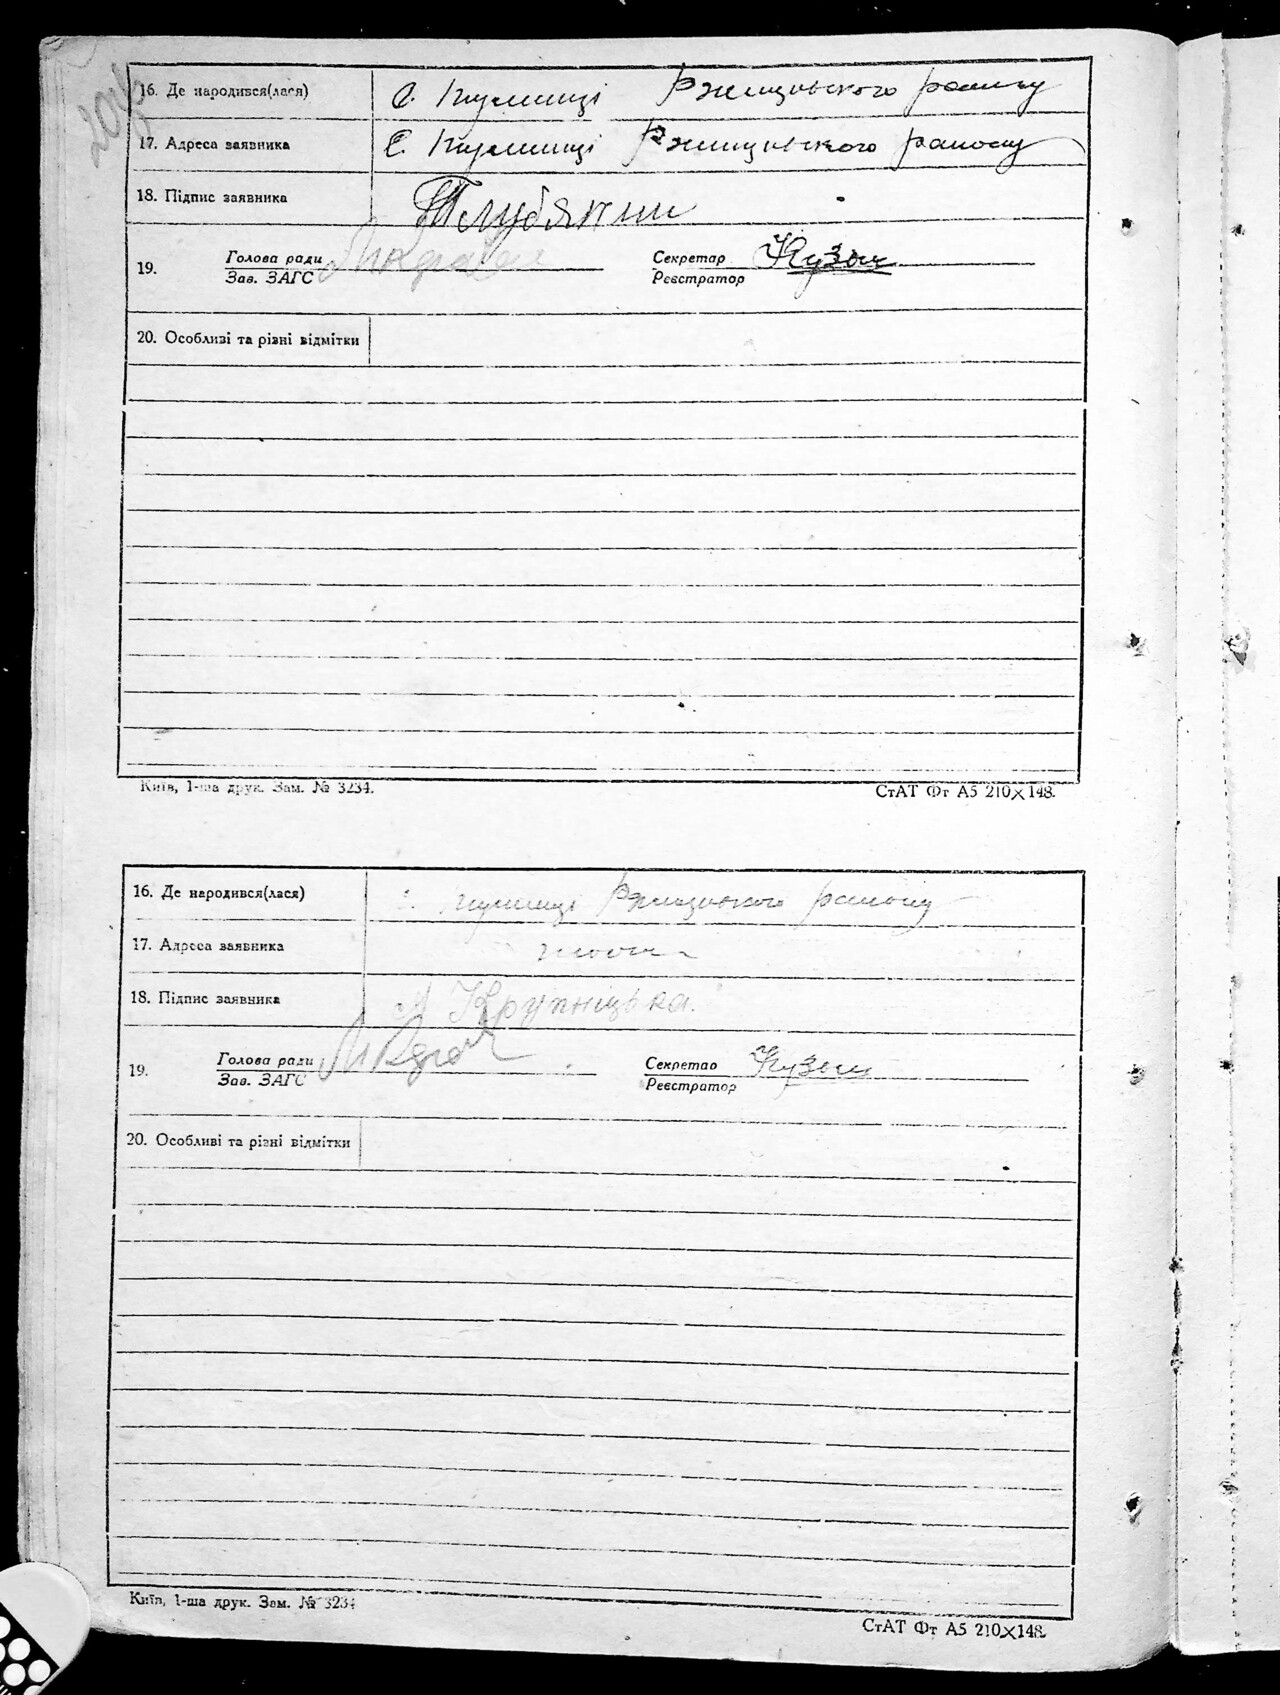 16. Де народився(лася) с. Пулинці Ржищівського району
17. Адреса заявника с. Пулинці Ржищівського району
18. Підпис заявника
19. Голова ради Секретар
Зав. ЗАГС Реєстратор
20. Особливі та різні відмітки
Київ, 1-ша друк. Зам. № 3234. СтАТ Фт А5 210×148.
16. Де народився(лася) Ржищівського району
17. Адреса заявника
18. Підпис заявника Крупніцька.
19. Голова ради Секретар
Зав. ЗАГС Реєстратор
20. Особливі та різні відмітки
Київ, 1-ша друк. Зам. № 3234
СтАТ Фт А5 210×148.